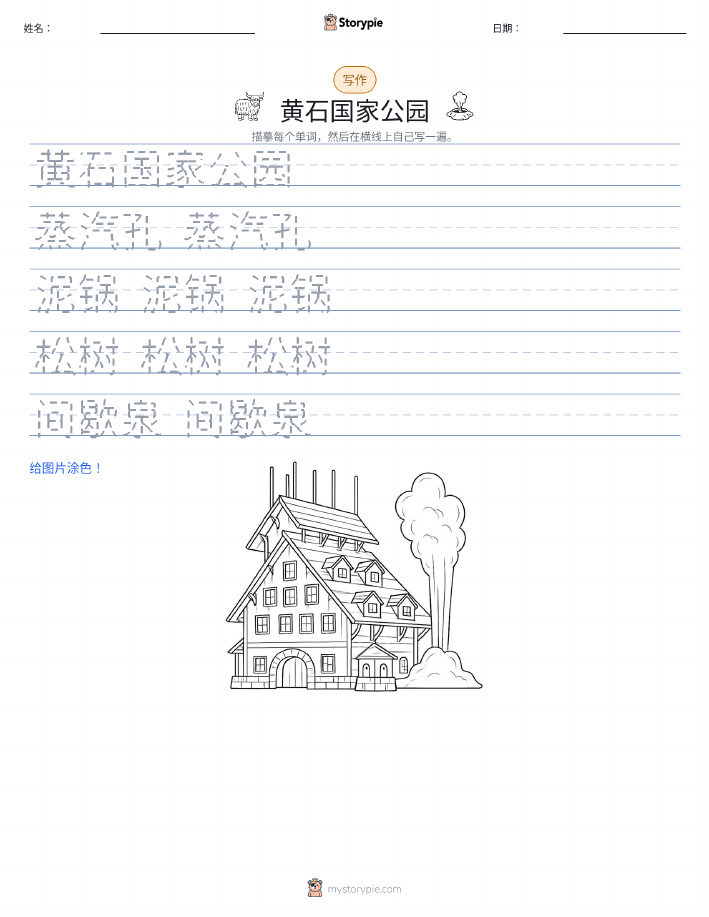 姓名：
Storypie
日期：
写作
黄石国家公园
描摹每个单词，然后在横线上自己写一遍。
黄石国家公园
蒸汽孔 蒸汽孔
泥锅 泥锅 泥锅
松树 松树 松树
间歇泉 间歇泉
给图片涂色！
mystorypie.com